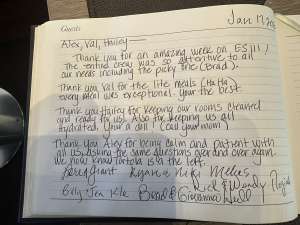 Guests
Jan
Alex, Val, Hailey —
Thank you for an amazing week on ES III!
The entire crew was so attentive to all
our needs including the picky one (Brad).
Thank you Val for the lite meals (Ha Ha)
every meal was exceptional. Your the best.
Thank you Hailey for keeping our rooms cleaned
and ready for us. Also for keeping us all
hydrated. Your a doll! (Call your mom)
Thank you Alex for being calm and patient with
all us asking the same questions over and over again.
We now know Tortola is to the left.
Grant Ryan & Niki
Rick & Wendy
Billy Jen Kle Brad &